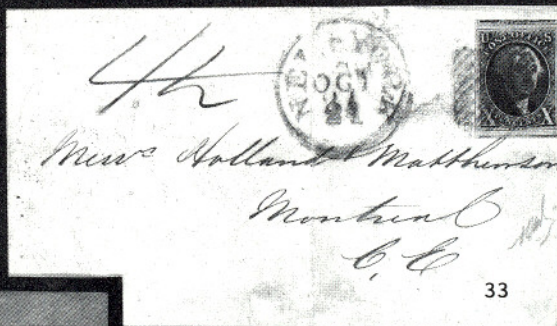 4½
NEW YORK
OCT
21
U S POST OFFICE
X X
Messrs Holland & Matthewson
Montreal
C. E
33